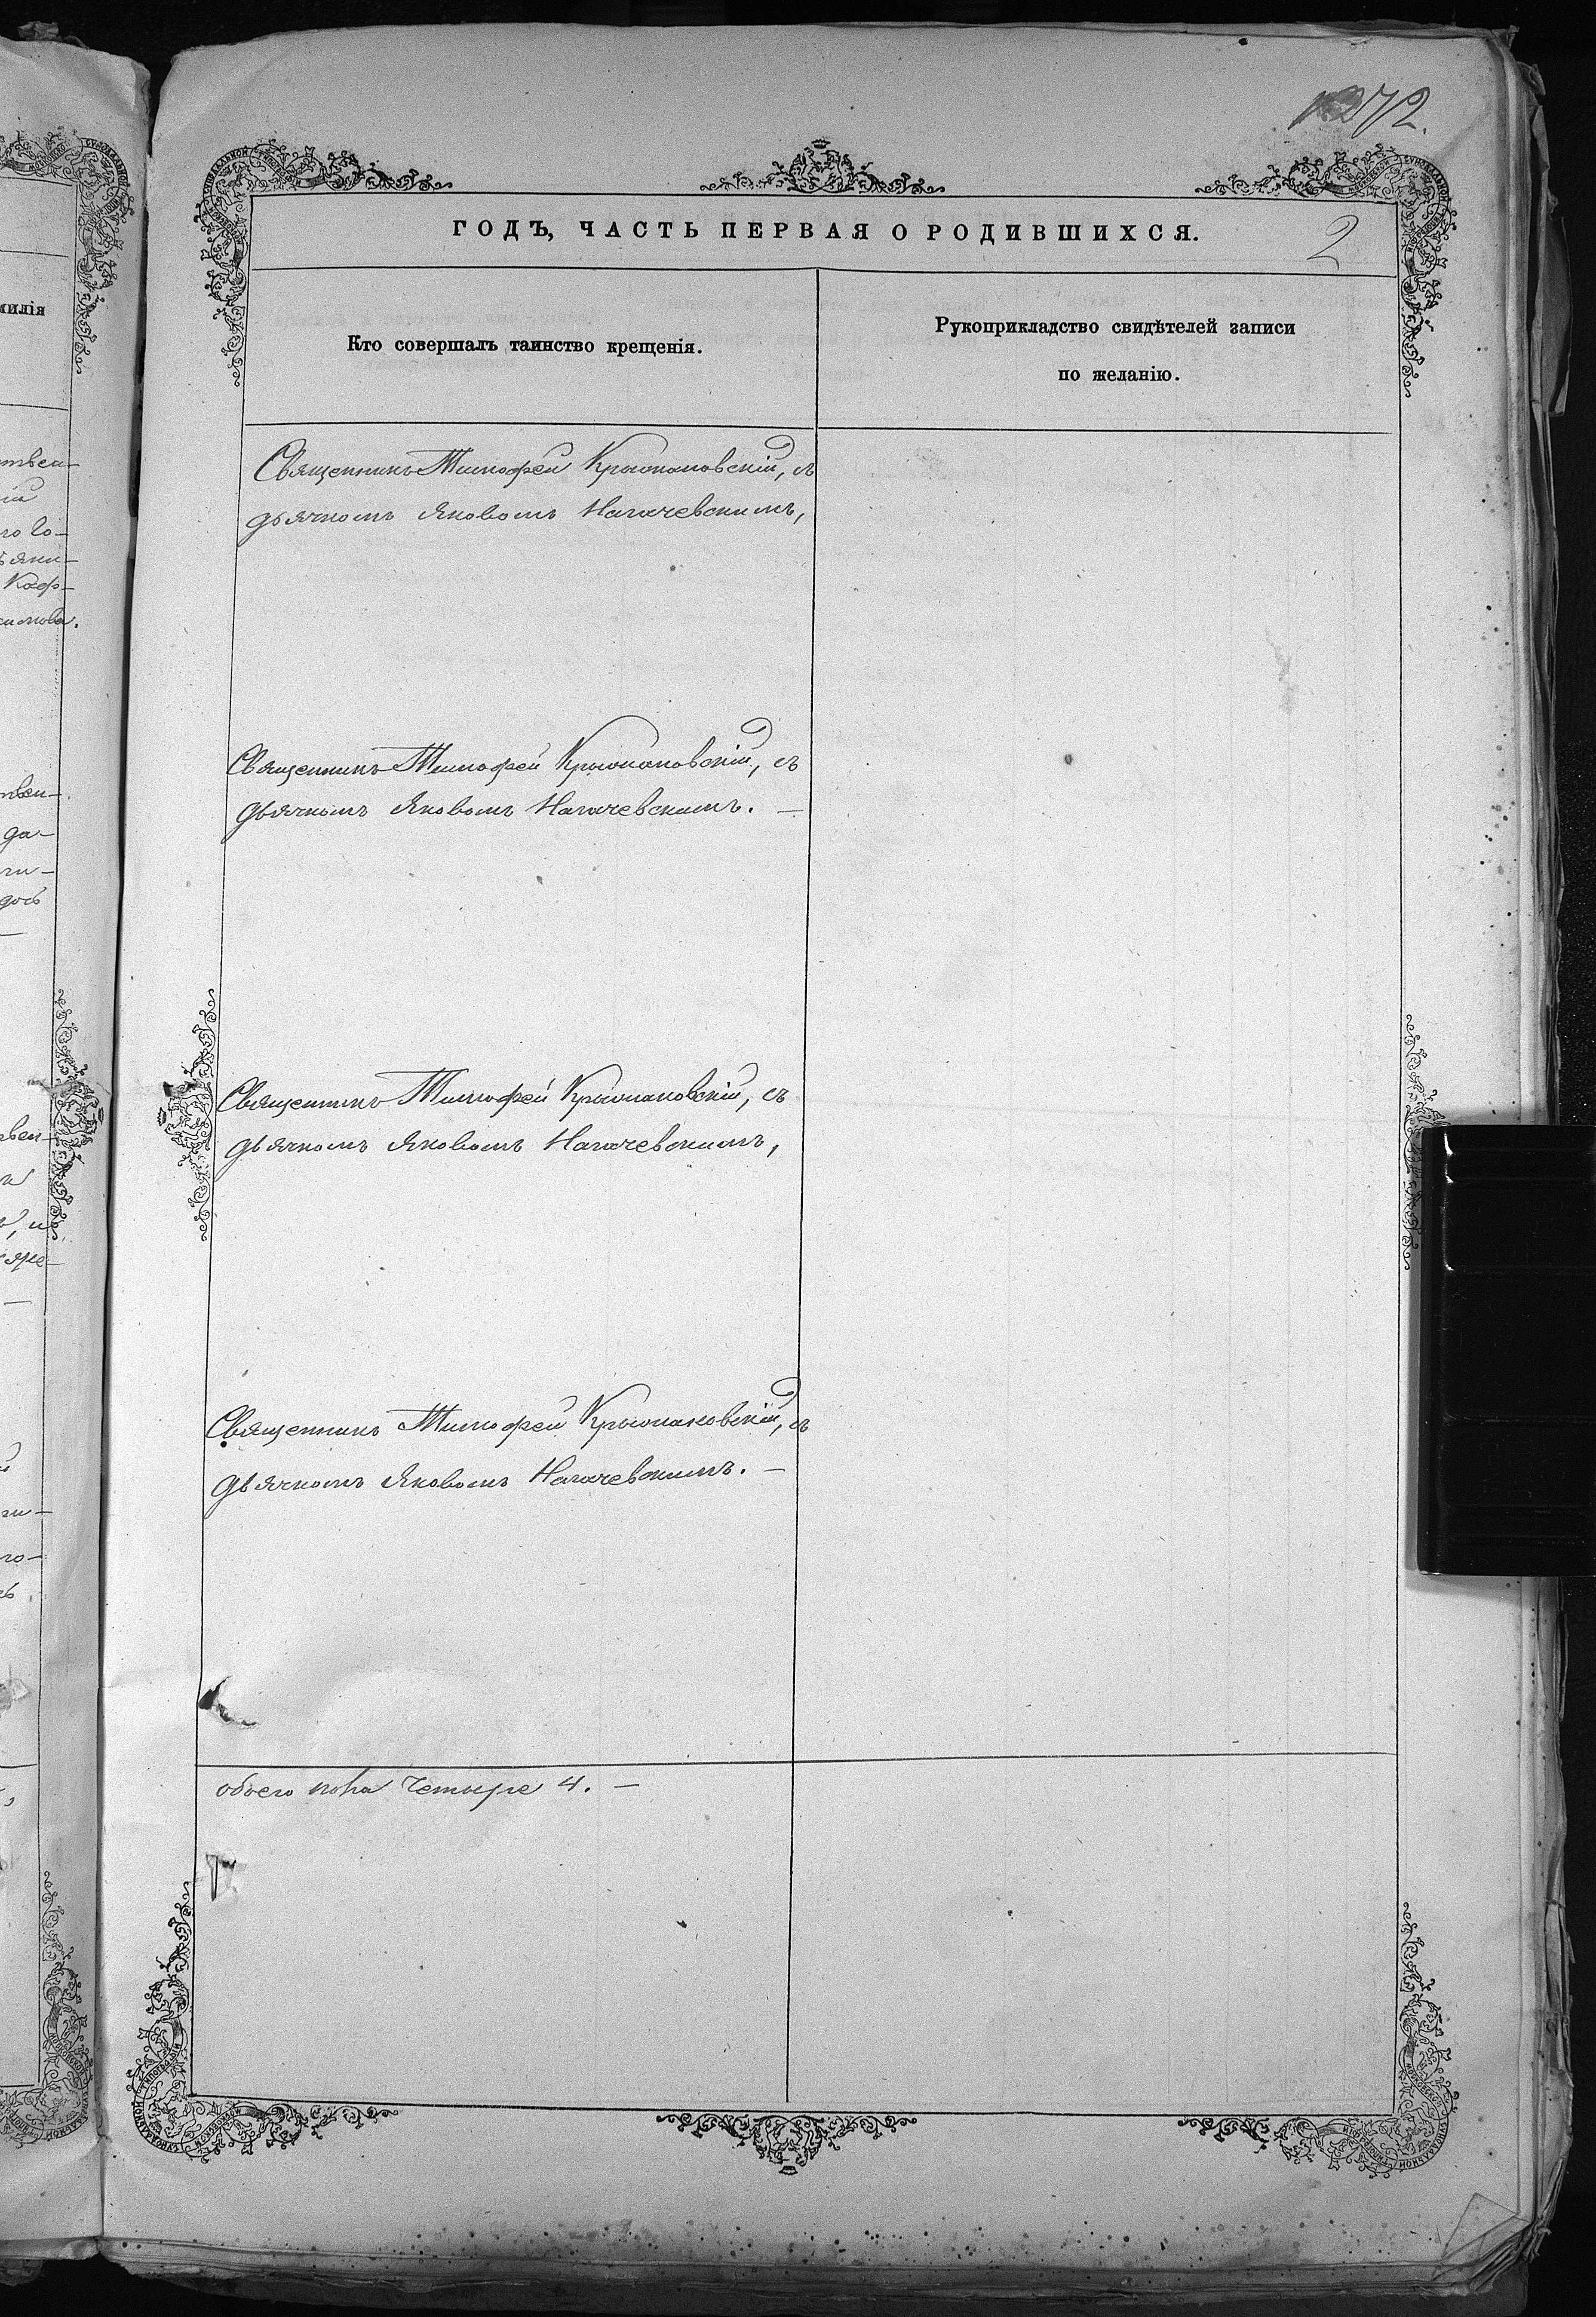 272.
ГОДЪ, ЧАСТЬ ПЕРВАЯ О РОДИВШИХСЯ.
2
Кто совершалъ таинство крещенія.
Рукоприкладство свидѣтелей записи
по желанію.
Священникъ Тимофей Крыжановскій, съ
дьячкомъ Яковомъ Нагачевскимъ,
Священникъ Тимофей Крыжановскій, съ
дьячкомъ Яковомъ Нагачевскимъ. —
Священникъ Тимофей Крыжановскій, съ
дьячкомъ Яковомъ Нагачевскимъ,
Священникъ Тимофей Крыжановскій, съ
дьячкомъ Яковомъ Нагачевскимъ. —
обоего пола четыре 4. —